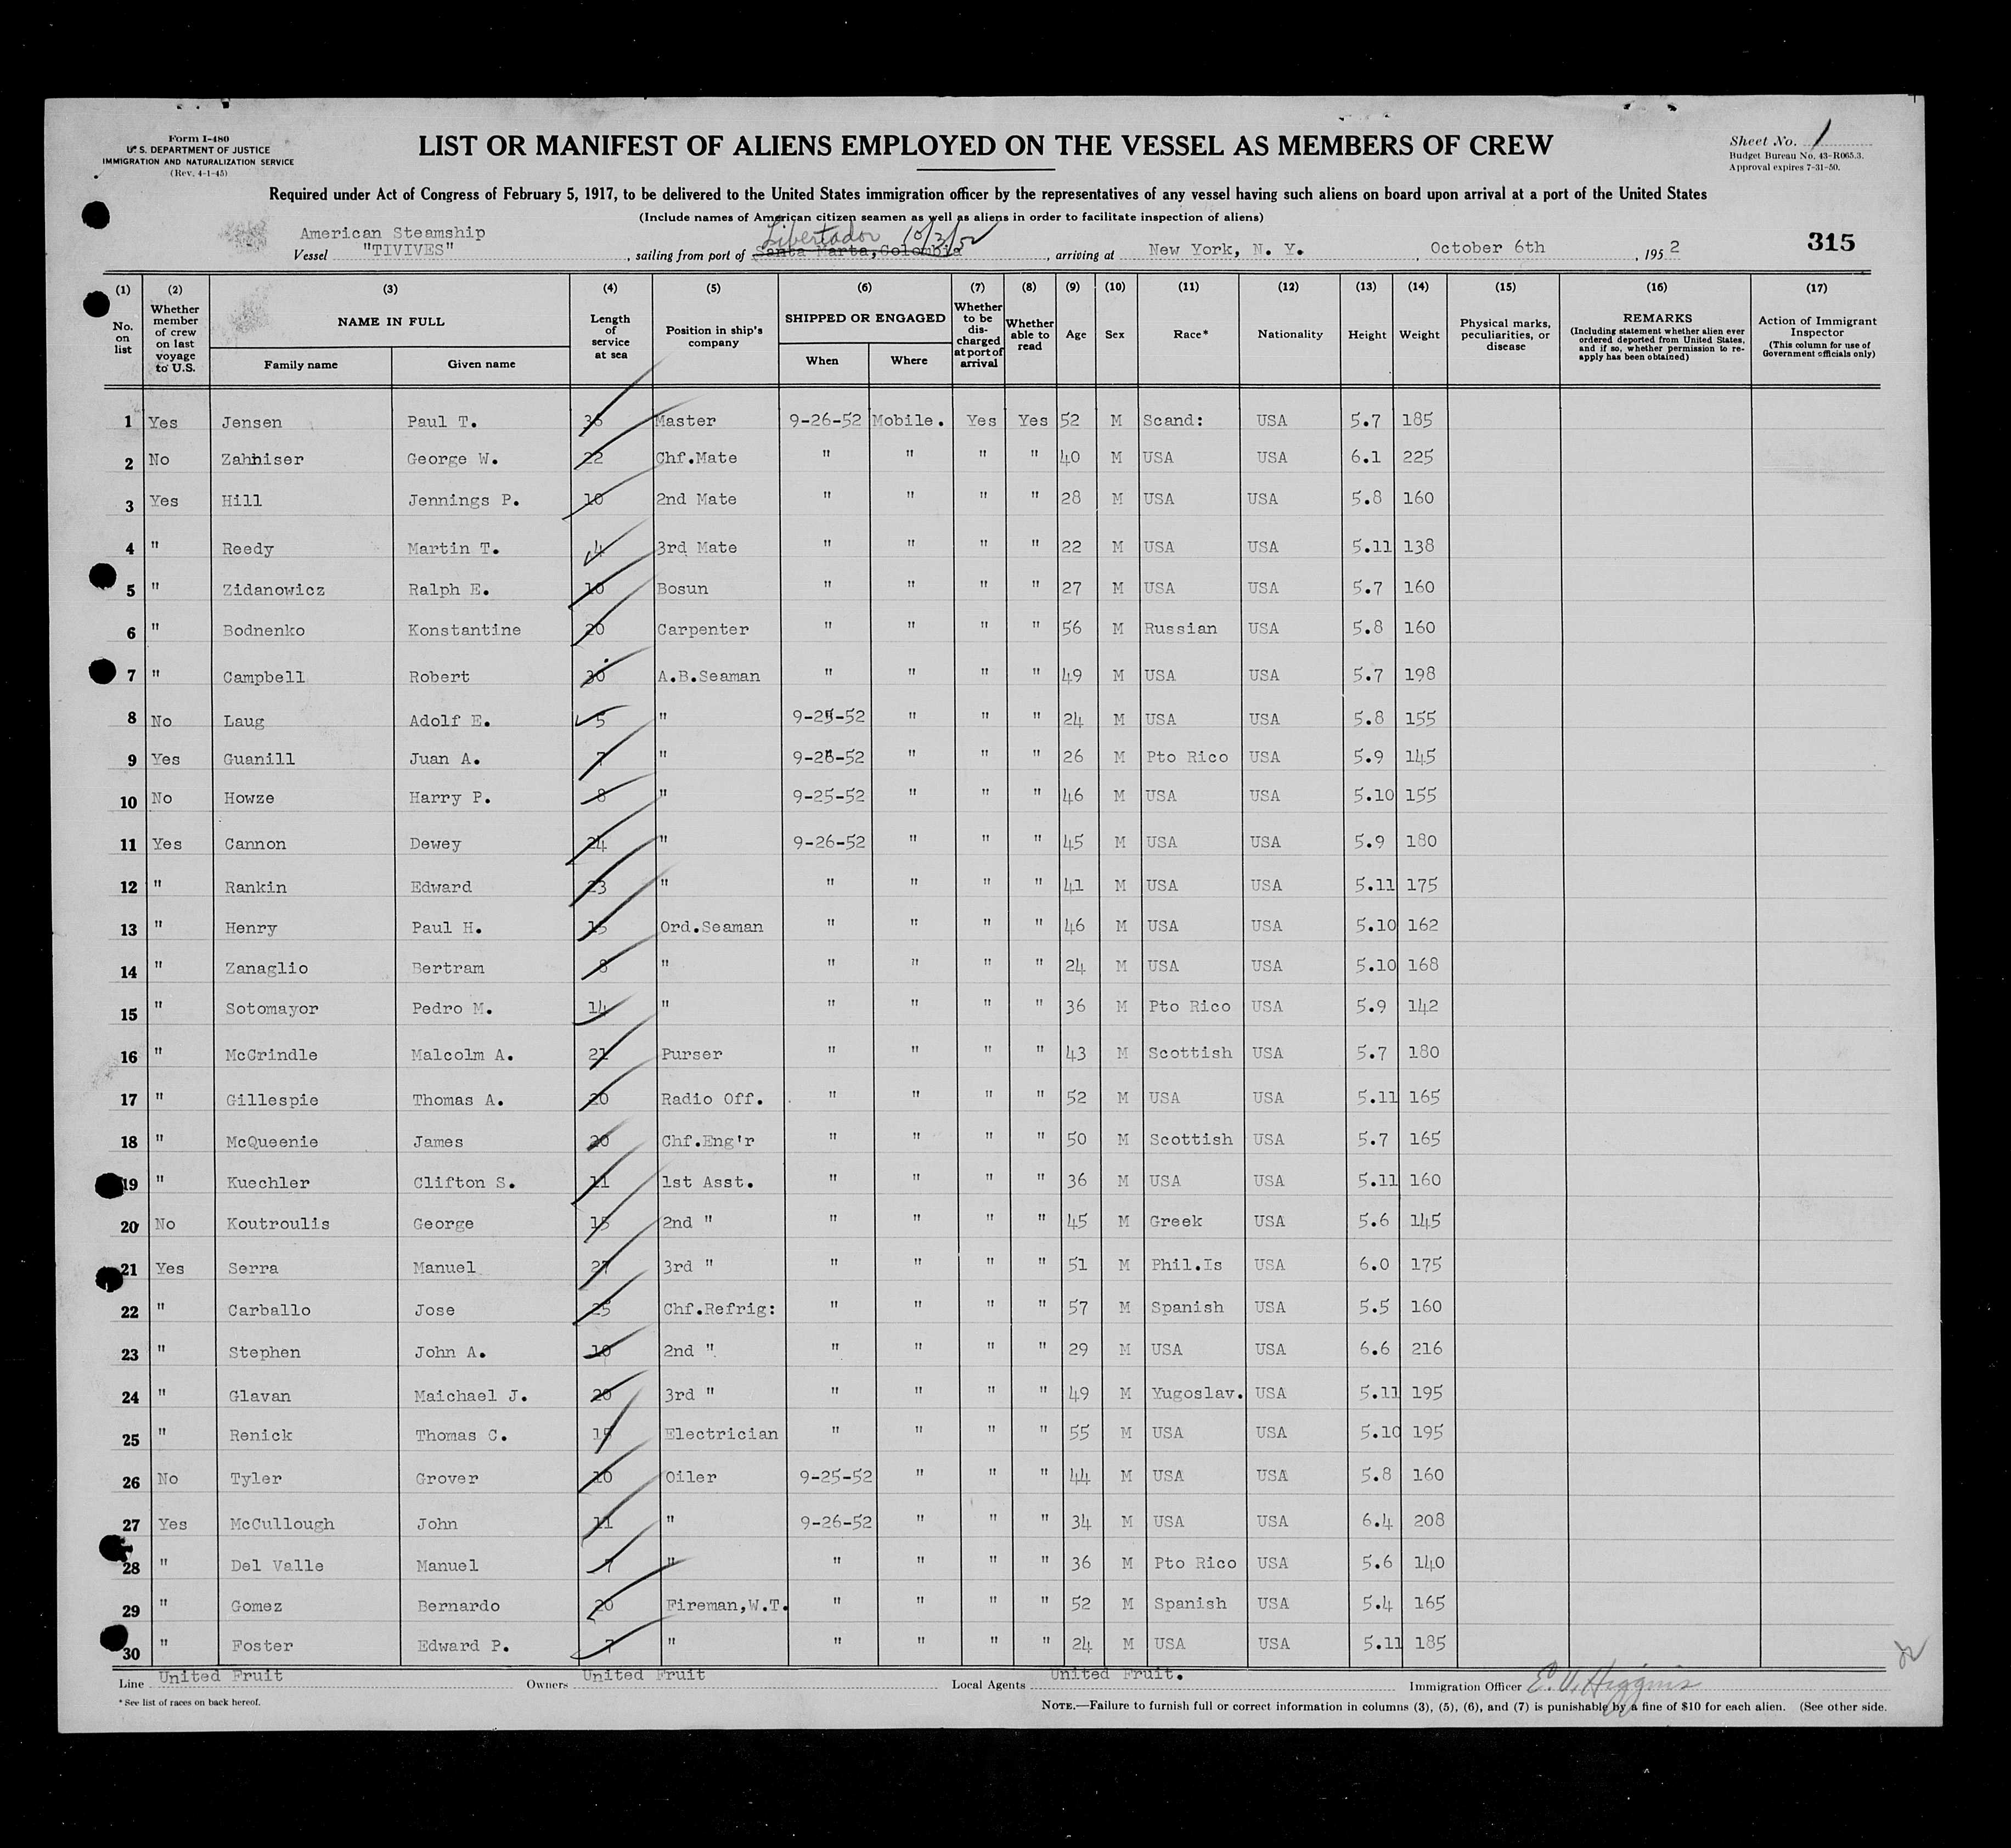 Form I-480
U. S. DEPARTMENT OF JUSTICE
IMMIGRATION AND NATURALIZATION SERVICE
(Rev. 4-1-45)
LIST OR MANIFEST OF ALIENS EMPLOYED ON THE VESSEL AS MEMBERS OF CREW
Sheet No. 1
Budget Bureau No. 43-R065.3.
Approval expires 7-31-50.
Required under Act of Congress of February 5, 1917, to be delivered to the United States immigration officer by the representatives of any vessel having such aliens on board upon arrival at a port of the United States
(Include names of American citizen seamen as well as aliens in order to facilitate inspection of aliens)
American Steamship Libertador 10/3/52
Vessel "TIVIVES", sailing from port of Santa Marta, Colombia, arriving at New York, N. Y., October 6th, 1952
315
(1) No. on list (2) Whether member of crew on last voyage to U.S. (3) NAME IN FULL Family name Given name (4) Length of service at sea (5) Position in ship's company (6) SHIPPED OR ENGAGED When Where (7) Whether to be discharged at port of arrival (8) Whether able to read (9) Age (10) Sex (11) Race* (12) Nationality (13) Height (14) Weight (15) Physical marks, peculiarities, or disease (16) REMARKS (Including statement whether alien ever ordered deported from United States, and if so, whether permission to reapply has been obtained) (17) Action of Immigrant Inspector (This column for use of Government officials only)
1 Yes Jensen Paul T. 36 Master 9-26-52 Mobile. Yes Yes 52 M Scand: USA 5.7 185
2 No Zahniser George W. 22 Chf.Mate " " " " 40 M USA USA 6.1 225
3 Yes Hill Jennings P. 10 2nd Mate " " " " 28 M USA USA 5.8 160
4 " Reedy Martin T. 4 3rd Mate " " " " 22 M USA USA 5.11 138
5 " Zidanowicz Ralph E. 10 Bosun " " " " 27 M USA USA 5.7 160
6 " Bodnenko Konstantine 20 Carpenter " " " " 56 M Russian USA 5.8 160
7 " Campbell Robert 30 A.B.Seaman " " " " 49 M USA USA 5.7 198
8 No Laug Adolf E. 5 " 9-25-52 " " " 24 M USA USA 5.8 155
9 Yes Guanill Juan A. 7 " 9-26-52 " " " 26 M Pto Rico USA 5.9 145
10 No Howze Harry P. 8 " 9-25-52 " " " 46 M USA USA 5.10 155
11 Yes Cannon Dewey 24 " 9-26-52 " " " 45 M USA USA 5.9 180
12 " Rankin Edward 23 " " " " " 41 M USA USA 5.11 175
13 " Henry Paul H. 15 Ord.Seaman " " " " 46 M USA USA 5.10 162
14 " Zanaglio Bertram 8 " " " " " 24 M USA USA 5.10 168
15 " Sotomayor Pedro M. 14 " " " " " 36 M Pto Rico USA 5.9 142
16 " McCrindle Malcolm A. 21 Purser " " " " 43 M Scottish USA 5.7 180
17 " Gillespie Thomas A. 20 Radio Off. " " " " 52 M USA USA 5.11 165
18 " McQueenie James 20 Chf.Eng'r " " " " 50 M Scottish USA 5.7 165
19 " Kuechler Clifton S. 11 1st Asst. " " " " 36 M USA USA 5.11 160
20 No Koutroulis George 15 2nd " " " " " 45 M Greek USA 5.6 145
21 Yes Serra Manuel 27 3rd " " " " " 51 M Phil.Is USA 6.0 175
22 " Carballo Jose 25 Chf.Refrig: " " " " 57 M Spanish USA 5.5 160
23 " Stephen John A. 10 2nd " " " " " 29 M USA USA 6.6 216
24 " Glavan Maichael J. 20 3rd " " " " " 49 M Yugoslav. USA 5.11 195
25 " Renick Thomas C. 15 Electrician " " " " 55 M USA USA 5.10 195
26 No Tyler Grover 10 Oiler 9-25-52 " " " 44 M USA USA 5.8 160
27 Yes McCullough John 11 " 9-26-52 " " " 34 M USA USA 6.4 208
28 " Del Valle Manuel 7 " " " " " 36 M Pto Rico USA 5.6 140
29 " Gomez Bernardo 20 Fireman,W.T. " " " " 52 M Spanish USA 5.4 165
30 " Foster Edward P. 7 " " " " " 24 M USA USA 5.11 185
Line United Fruit Owners United Fruit Local Agents United Fruit. Immigration Officer E. V. Higgins
* See list of races on back hereof.
NOTE.—Failure to furnish full or correct information in columns (3), (5), (6), and (7) is punishable by a fine of $10 for each alien. (See other side.